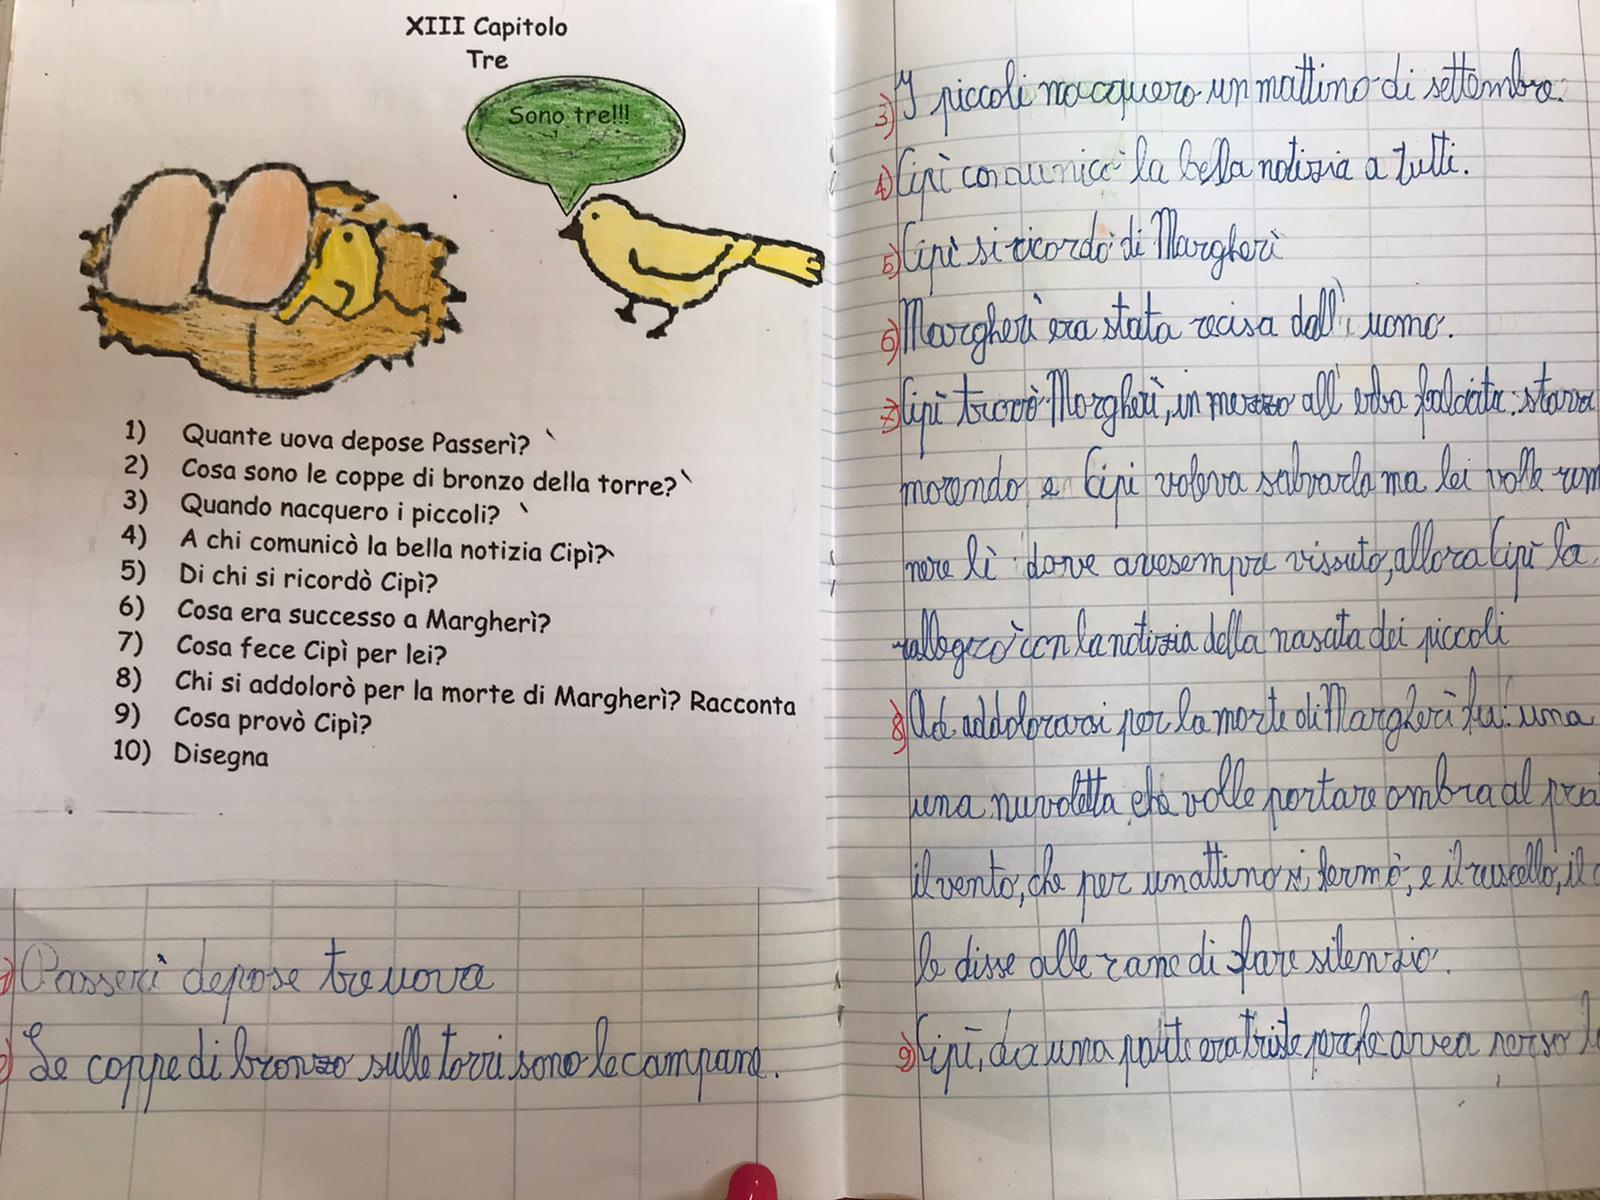 XIII Capitolo
Tre
Sono tre!!!
1) Quante uova depose Passerì?
2) Cosa sono le coppe di bronzo della torre?
3) Quando nacquero i piccoli?
4) A chi comunicò la bella notizia Cipì?
5) Di chi si ricordò Cipì?
6) Cosa era successo a Margherì?
7) Cosa fece Cipì per lei?
8) Chi si addolorò per la morte di Margherì? Racconta
9) Cosa provò Cipì?
10) Disegna
1) Passerì depose tre uova
2) Le coppe di bronzo sulle torri sono le campane.
3) I piccoli nacquero un mattino di settembre.
4) Cipì comunicò la bella notizia a tutti.
5) Cipì si ricordò di Margherì
6) Margherì era stata recisa dall' uomo.
7) Cipì trovò Margherì, in mezzo all' erba falciata: stava
morendo e Cipì voleva salvarla ma lei volle rim
nere lì dove avesempre vissuto, allora Cipì là
rallegrò con la notizia della nascata dei piccoli
8) Ad addolorarsi per la morte di Margherì fu: una
una nuvoletta che volle portare ombra al pra
il vento, che per un attimo si fermò, e il ruscello, il
le disse alle rane di fare silenzio.
9) Cipì, da una parte era triste perche avea perso